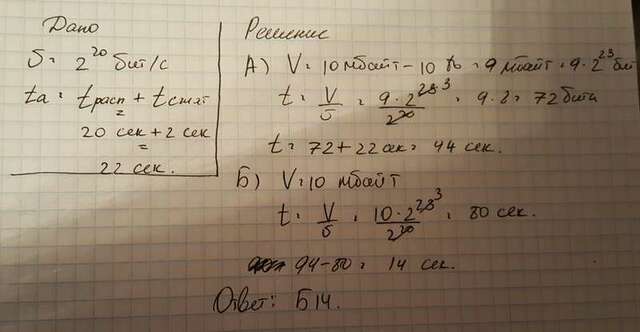 Дано
υ = 2^20 бит/с
tа = tрасп + tсжат
=
20 сек + 2 сек
=
22 сек.
Решение
А) V = 10 мбайт - 10 % = 9 мбайт = 9 · 2^23 бит
t = V/υ = 9 · 2^23/2^20 = 9 · 8 = 72 бита
3
t = 72 + 22 сек = 94 сек.
Б) V = 10 мбайт
t = V/υ = 10 · 2^23/2^20 = 80 сек.
3
94 - 80 = 14 сек.
Ответ: Б14.